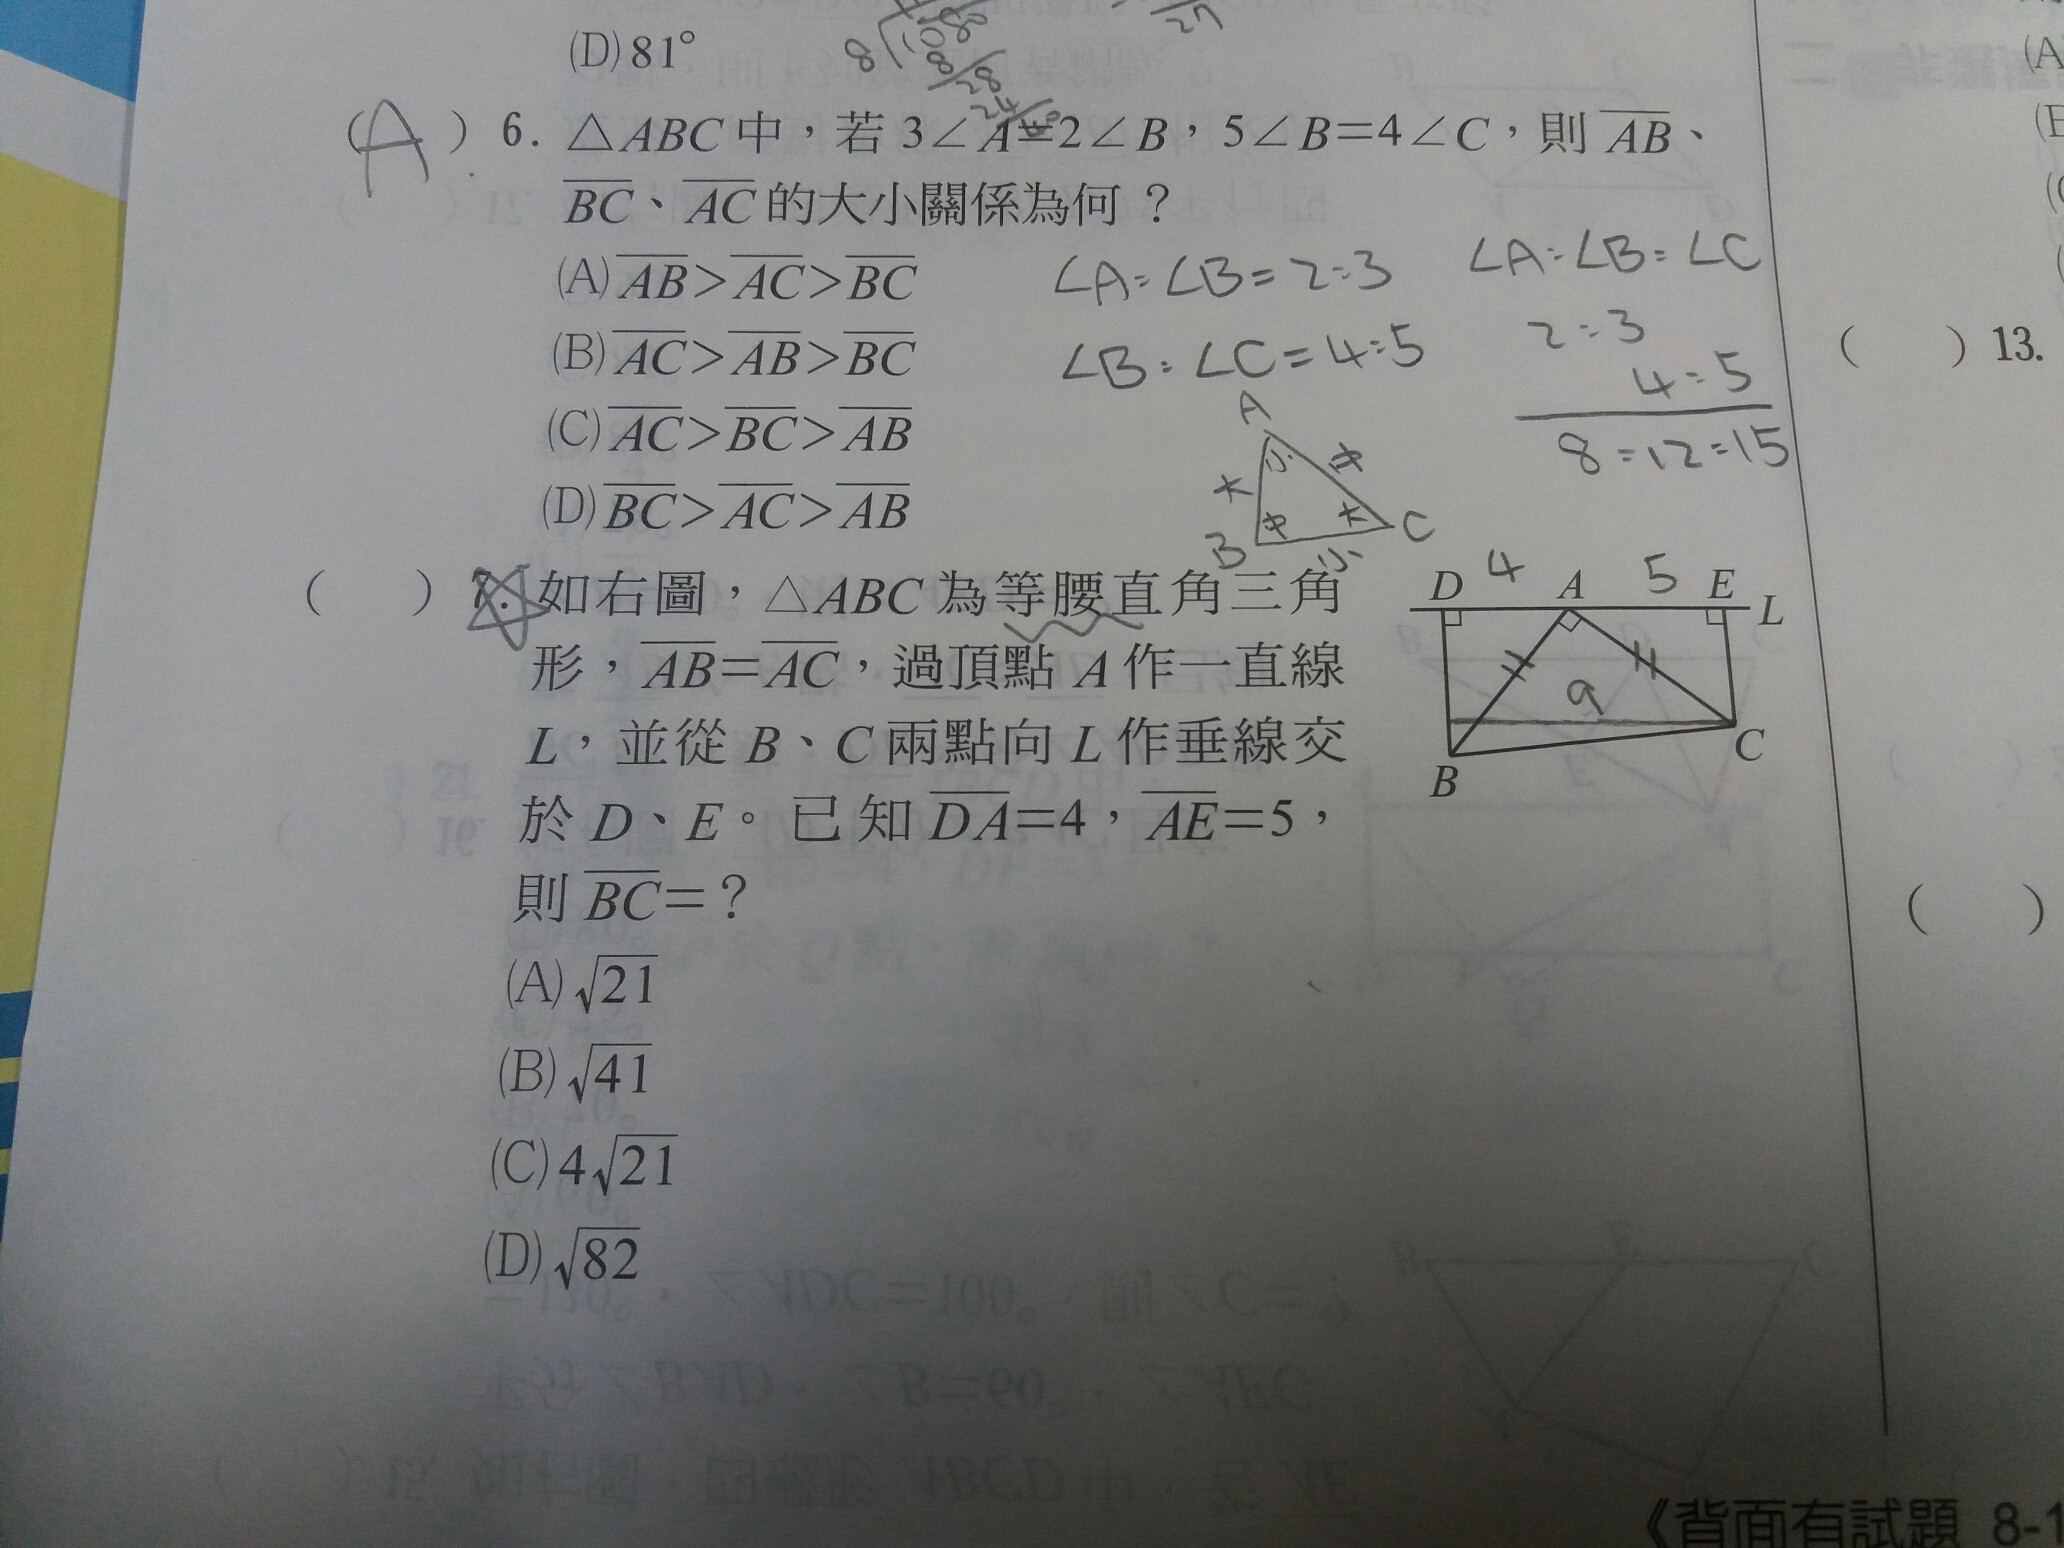 (D) 81°
(A) 6. △ABC中，若 3∠A=2∠B，5∠B=4∠C，則 AB、
BC、AC 的大小關係為何？
(A) AB>AC>BC
(B) AC>AB>BC
(C) AC>BC>AB
(D) BC>AC>AB
∠A:∠B=2:3
∠B:∠C=4:5
∠A:∠B:∠C
2:3
4:5
8:12:15
A
B
C
小
( ) 7. 如右圖，△ABC 為等腰直角三角
形，AB=AC，過頂點 A 作一直線
L，並從 B、C 兩點向 L 作垂線交
於 D、E。已知 DA=4，AE=5，
則 BC=？
(A) √21
(B) √41
(C) 4√21
(D) √82
4 5
D A E L
9
B C
(A
( ) 13.
( )
《背面有試題 8-1